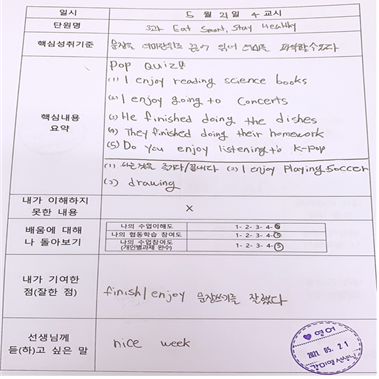 일시 5월 21일 4교시
단원명 3과 Eat Smart, Stay Healthy
핵심성취기준 문장을 의미단위로 끊어 읽어 의미를 파악할 수 있다
핵심내용 요약
Pop Quiz
(1) I enjoy reading science books
(2) I enjoy going to concerts
(3) He finished doing the dishes
(4) They finished doing their homework
(5) Do you enjoy listening to K-Pop
(1) 나는 것을 즐기다/끝내다 (2) I enjoy Playing Soccer
(3) drawing
내가 이해하지 못한 내용 X
배움에 대해 나 돌아보기
나의 수업이해도 1- 2- 3- 4- 5
나의 협동학습 참여도 1- 2- 3- 4- 5
나의 수업참여도 (개인별과제 완수) 1- 2- 3- 4- 5
내가 기여한 점(잘한 점) finish/enjoy 문장쓰기를 잘했다
선생님께 듣(하)고 싶은 말 nice week
영어
2021. 05. 21